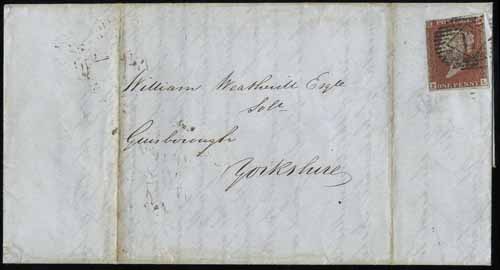 William Weatherill Esqre
Solr
Guisborough
Yorkshire
ONE PENNY